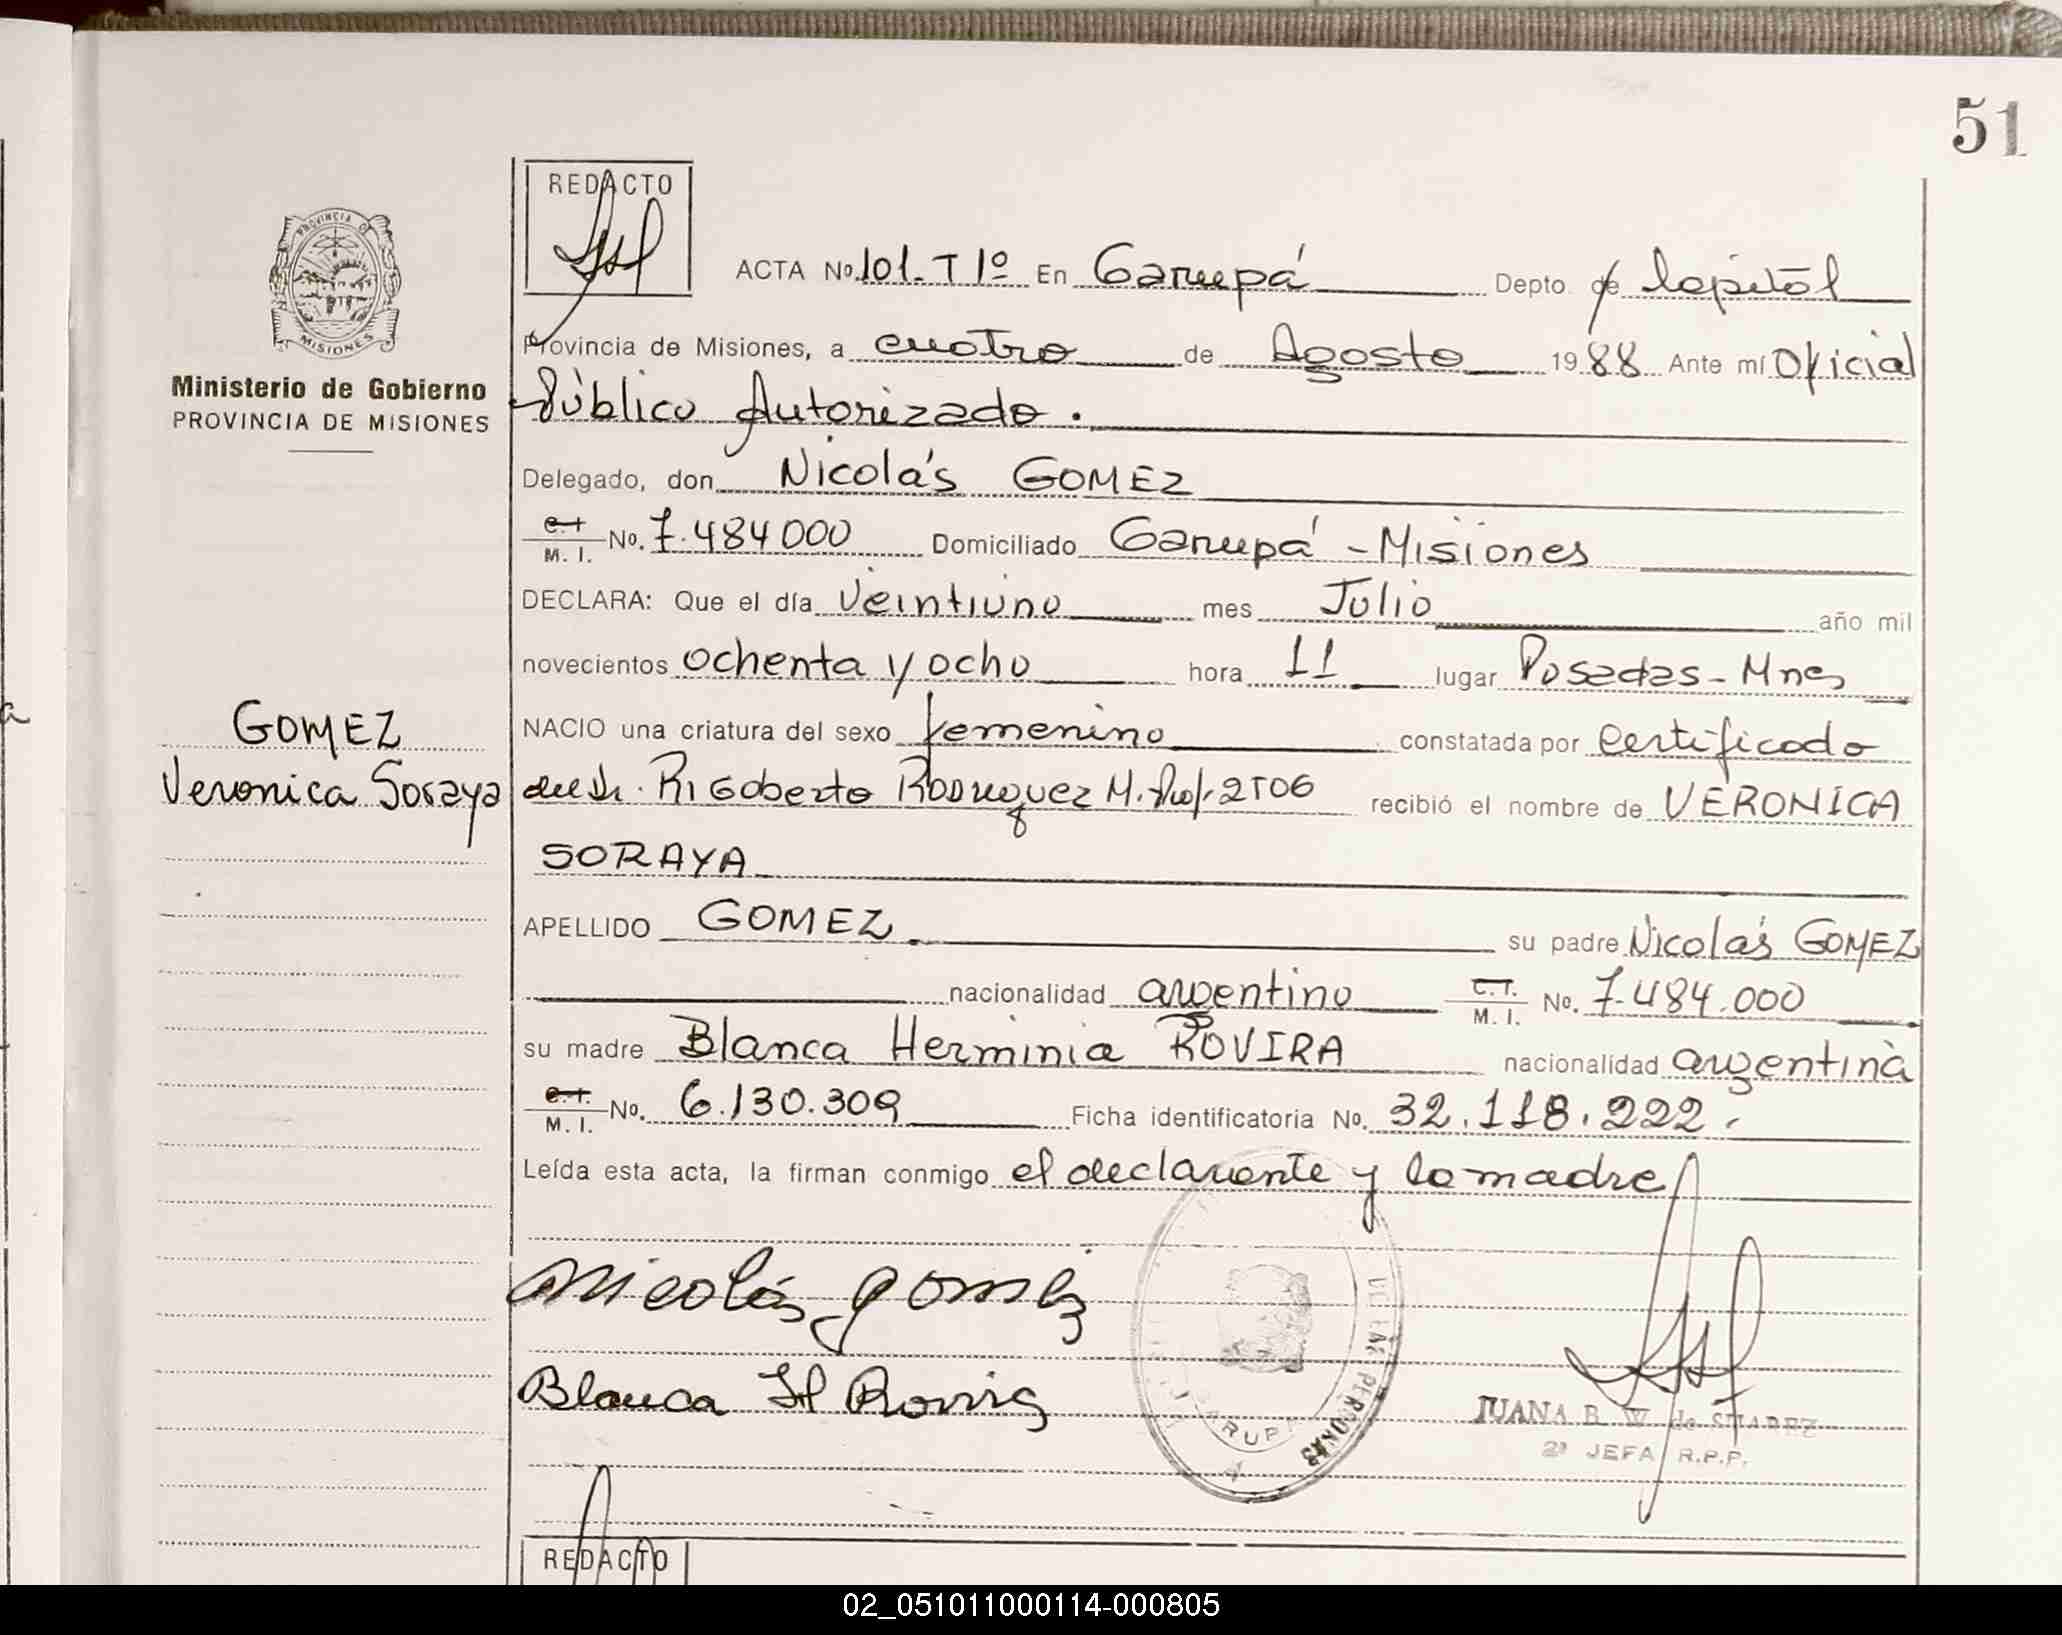 51
REDACTO
PROVINCIA DE
MISIONES
ACTA No. 101-T 1º En Garupá Depto. de Capital
Provincia de Misiones, a cuatro de Agosto 1988 Ante mí Oficial
Ministerio de Gobierno
PROVINCIA DE MISIONES
Público Autorizado.
Delegado, don Nicolás GOMEZ
C.I. M. I. No. 7.484000 Domiciliado Garupá - Misiones
DECLARA: Que el día Veintiuno mes Julio año mil
novecientos ochenta y ocho hora 11 lugar Posadas - Mnes
GOMEZ
Veronica Soraya
NACIO una criatura del sexo femenino constatada por certificado
del Dr. Rigoberto Rodriguez M. Prof. 2506 recibió el nombre de VERONICA
SORAYA
APELLIDO GOMEZ su padre Nicolás GOMEZ
nacionalidad argentino C.I. M. I. No. 7.484.000
su madre Blanca Herminia ROVIRA nacionalidad argentina
C.I. M. I. No. 6.130.309 Ficha identificatoria No. 32.118.222.
Leída esta acta, la firman conmigo el declarante y la madre
Nicolás gomez
Blanca H Rovira
DE LAS PERSONAS
JUANA B. W. de SUAREZ
2ª JEFA R.P.P.
REDACTO
02_051011000114-000805